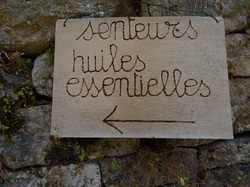 senteurs
huiles
essentielles